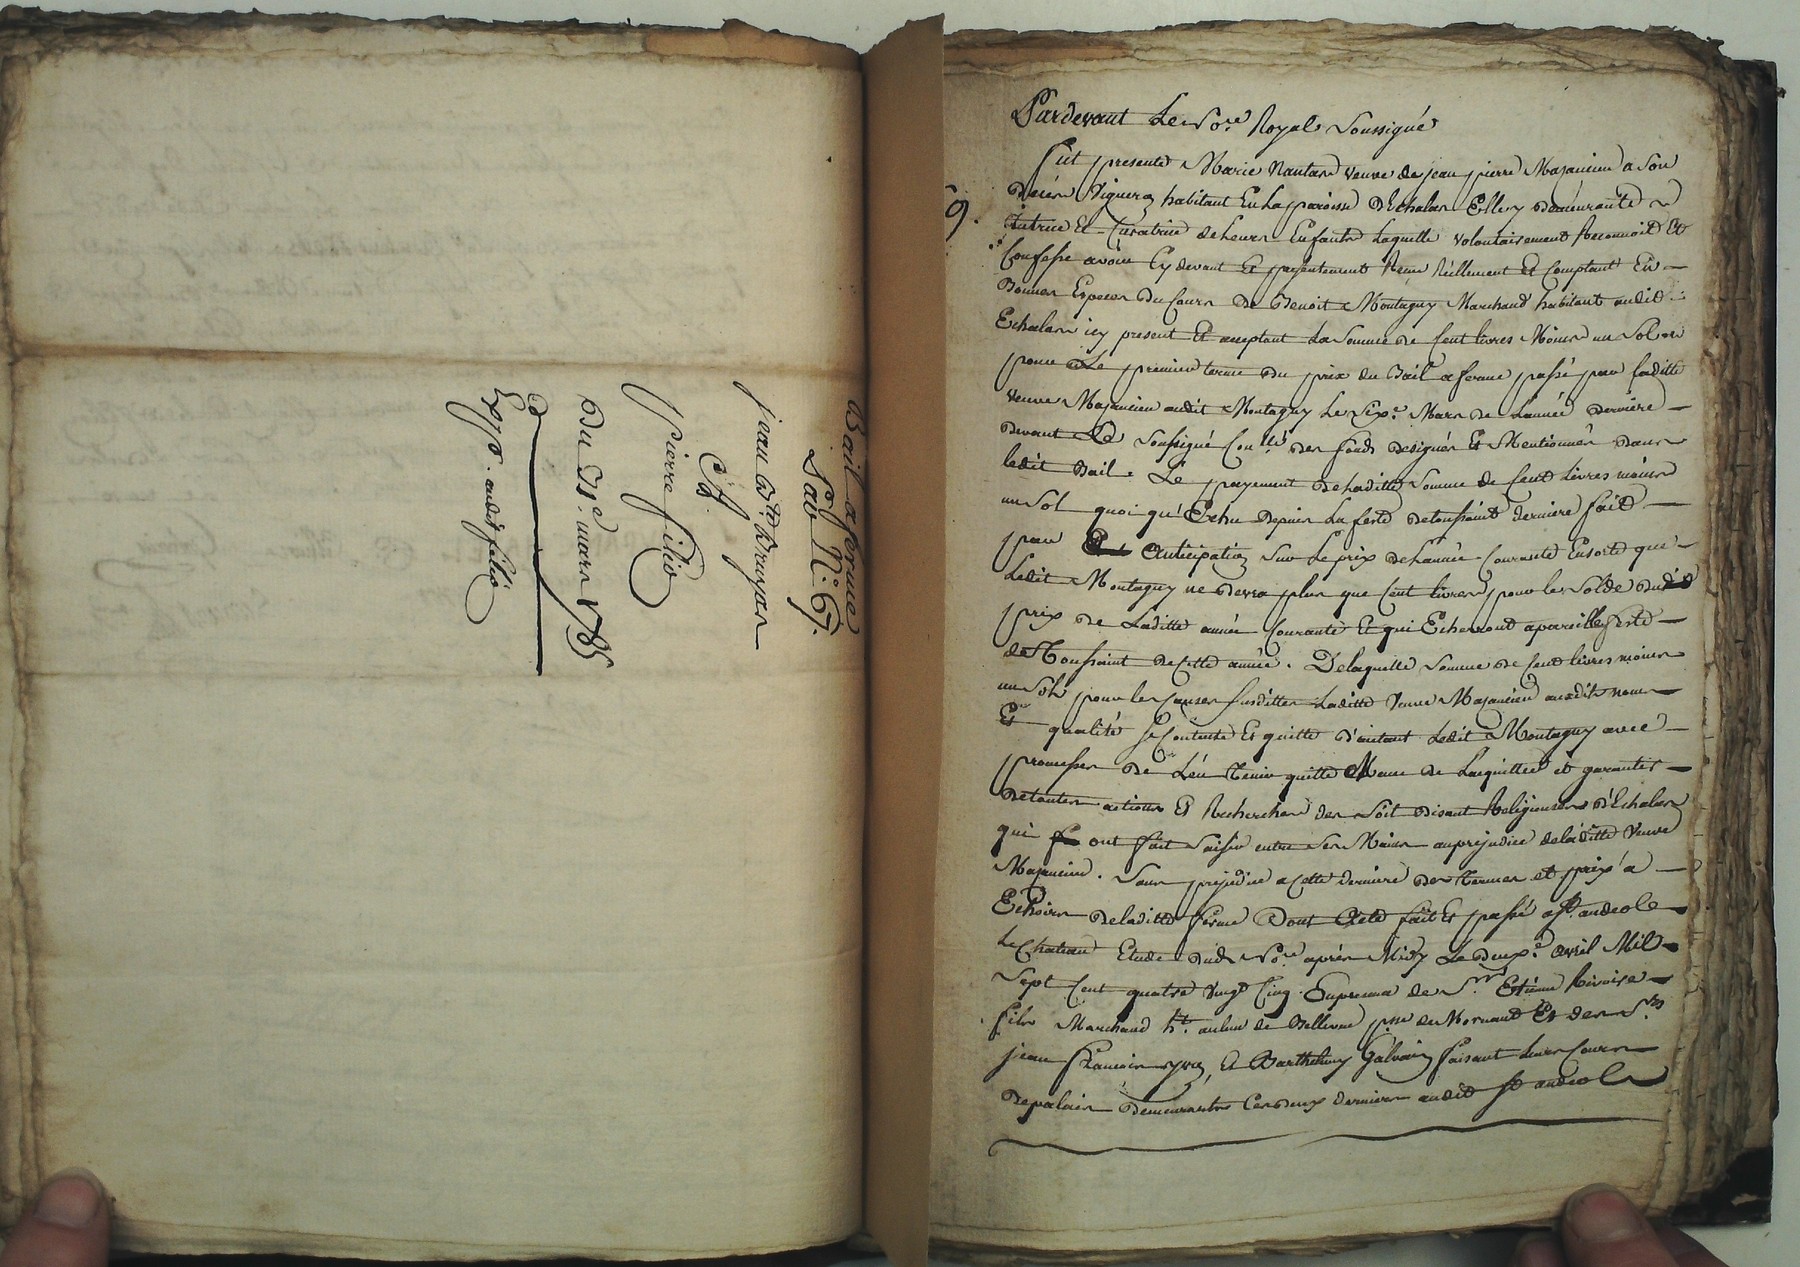 Bail a ferme
Par N.º 67.
jean Bte Druyer
à
pierre filio
Du 31e. mars 1785
Exp. audit filio
Pardevant Le No.re Royal Soussigné
fut presente Marie Nantas veuve de jean pierre Majancieu a Son
Decés Vigneron habitant En La paroisse D'Echalas Elle y demeurante
tutrice Et Curatrice de Leurs Enfants Laquelle volontairement Reconnoit Et
Confesse avoir Cy devant Et presentement Reçeu Réellement Et Comptant En
Bonnes Especes Du Cours De Benoit Montagny Marchand habitant audit
Echalas icy present Et acceptant La Somme de Cent livres Moins un Sol
pour Le premier terme Du prix du Bail a ferme passé par laditte
veuve Majancieu audit Montagny Le Six.e Mars de L'année Derniere
Devant Le Soussigné Con.lé des fonds designés Et Mentionnés Dans
ledit Bail. Le payement De Laditte Somme de Cent Livres moins
un Sol quoi qu'Echu Depuis La feste de toussaint derniere fait
par anticipation Sur Le prix de L'année Courante Ensorte que
Ledit Montagny ne Devra plus que Cent livres pour le Solde Dudit
prix de Laditte année Courante Et qui Echerront a pareille feste
de Toussaint de Cette année. De laquelle Somme de Cent livres moins
un Sol pour les Causes Susdittes Laditte Veuve Majancieu auxdits noms
Et qualité Se Contente Et quitte D'autant Ledit Montagny avec
promesses De L'en Tenir quitte Meme de L'acquitter et garantir
de toutes actions Et Recherches des Soit Disant Religieuses D'Echalas
qui ont fait Saisir entre Ses Mains au prejudice de laditte Veuve
Majancieu. Sans prejudice a Cette derniere des Termes et prix a
Echoir De laditte ferme Dont Acte fait Et passé a St. andeole
Le Chateau Etude Dud. No.re après Midy Le Deux.e avril Mil
Sept Cent quatre Vingt Cinq. En presence de S.r Etienne Rivoire
fils Marchand h.t au lieu de Bellevue p.sse de Mornant Et des S.rs
jean François yvrez, Et Barthelemy Galvain faisant Leurs Cours
De palais Demeurants Ces Deux derniers audit St andeole